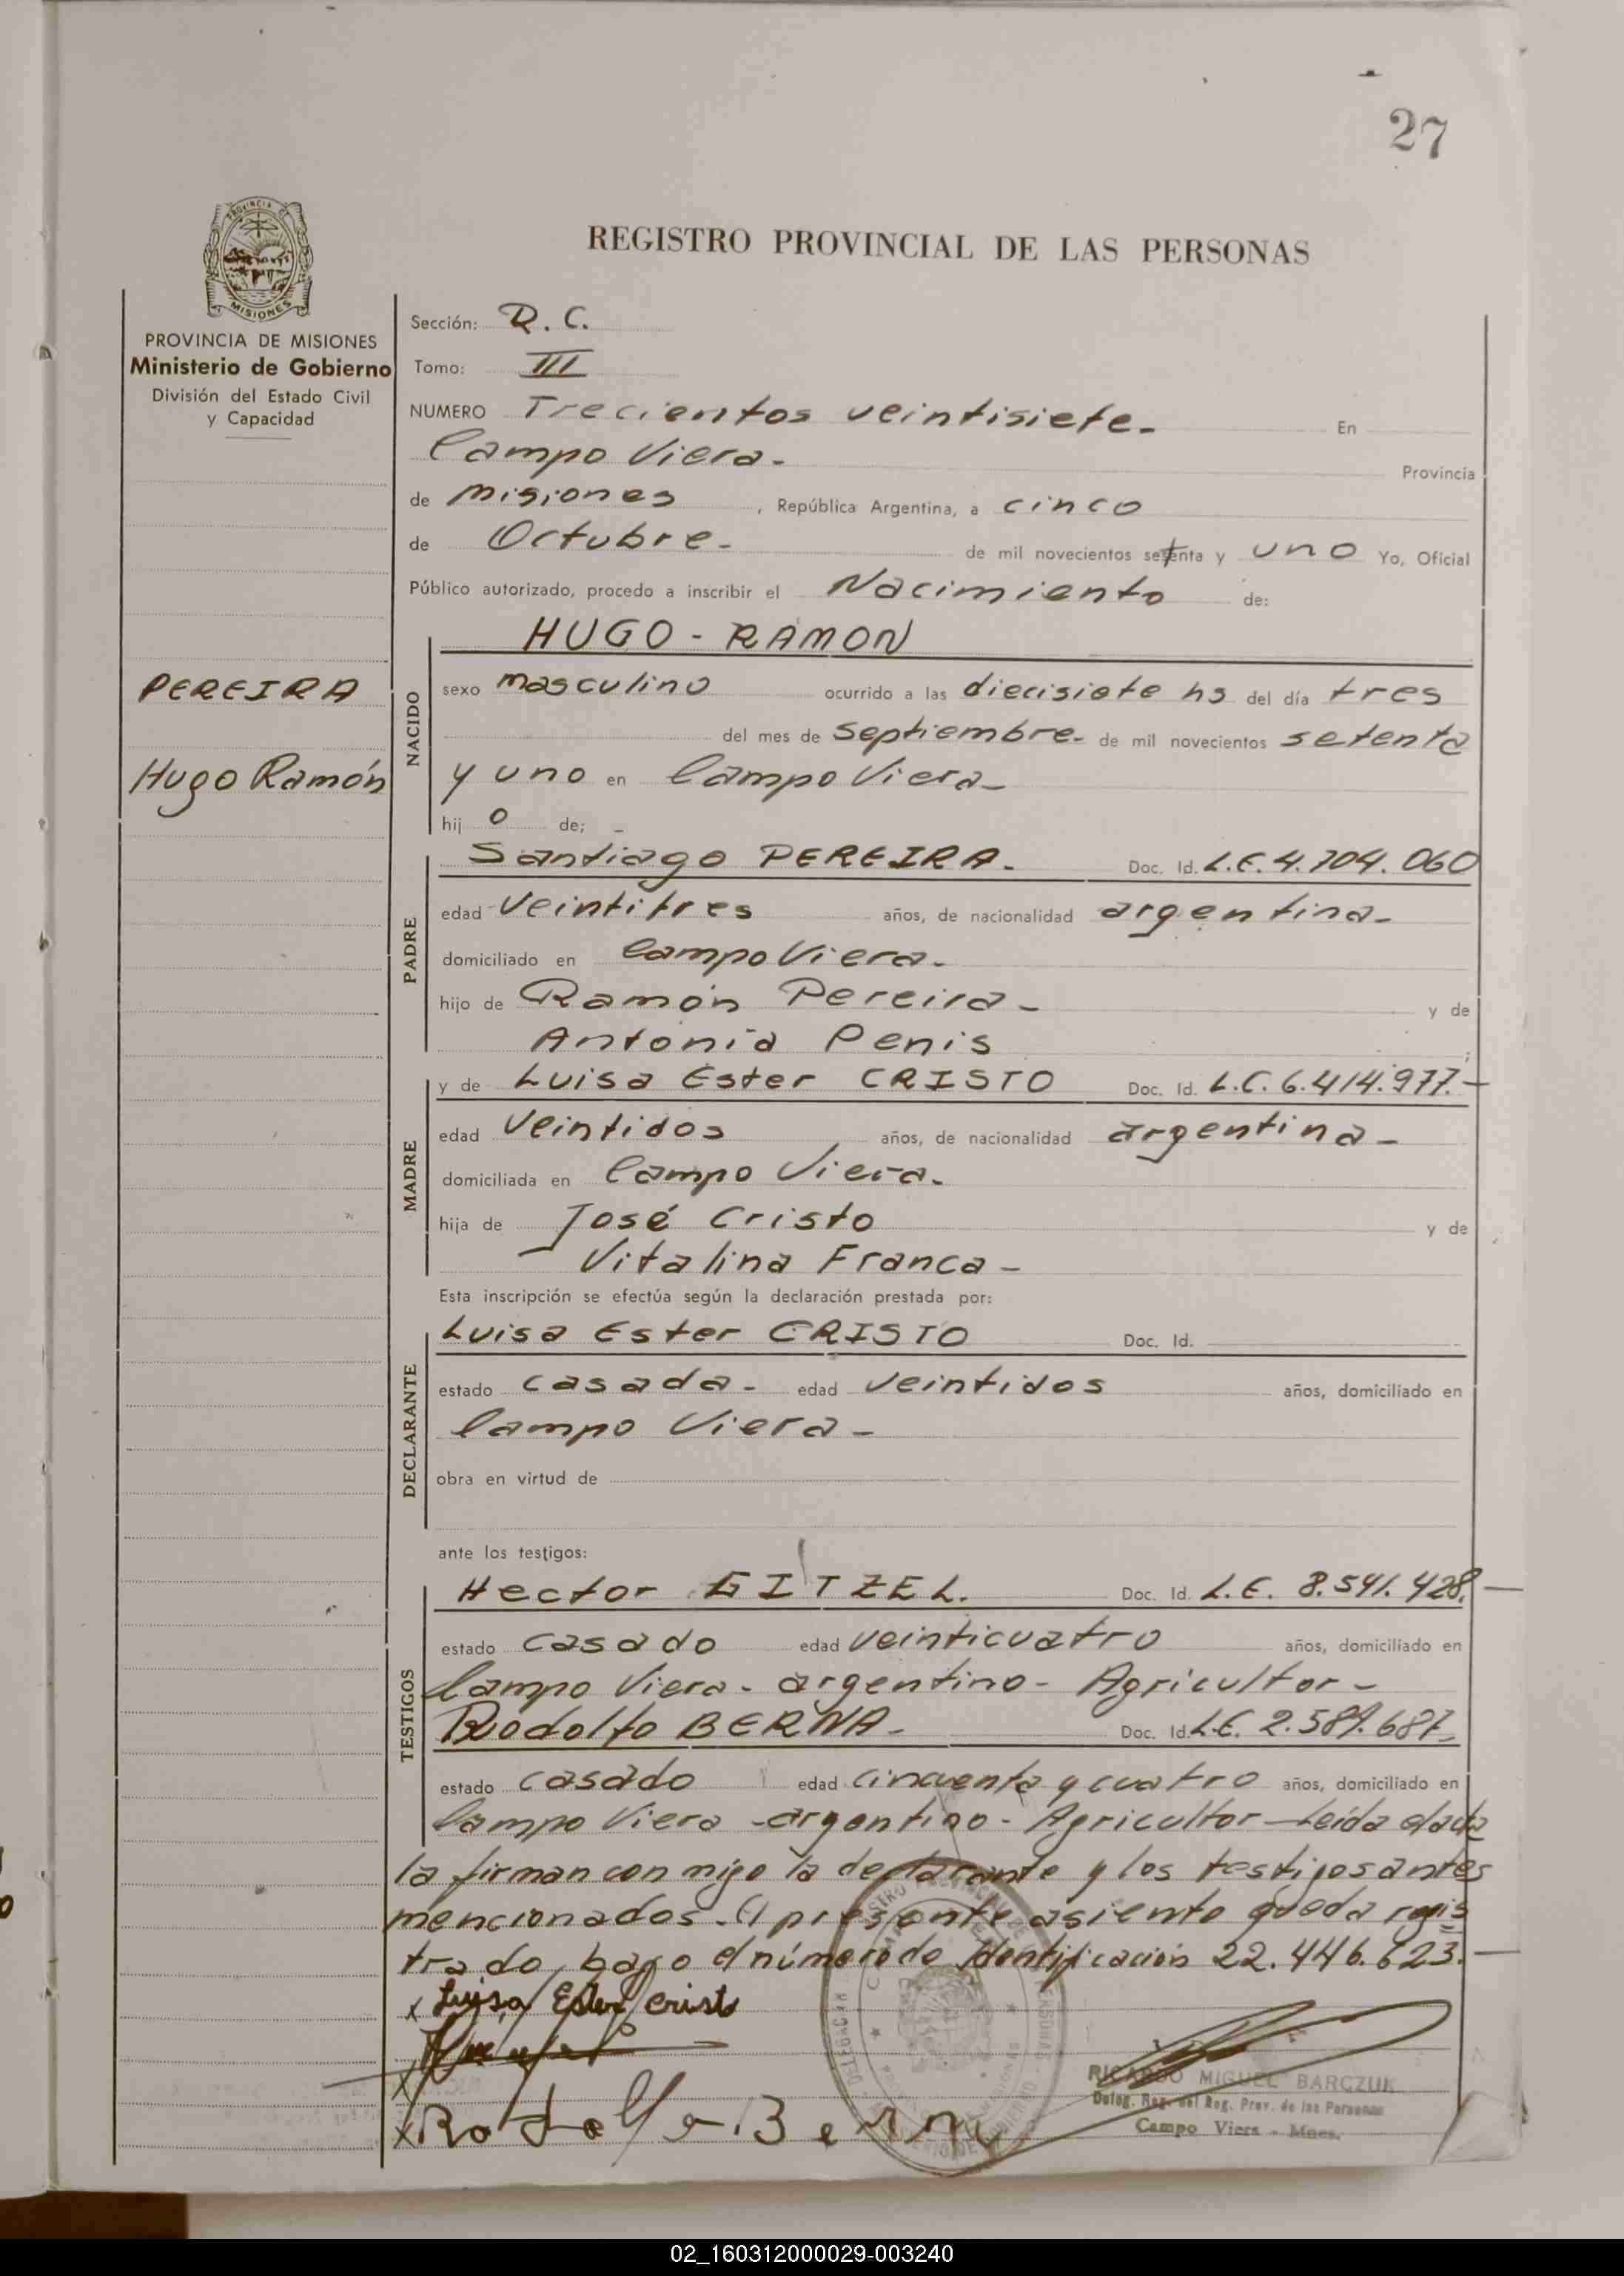 27
REGISTRO PROVINCIAL DE LAS PERSONAS
PROVINCIA DE MISIONES
Ministerio de Gobierno
División del Estado Civil
y Capacidad
Sección: R. C.
Tomo: III
NUMERO Trecientos veintisiete- En
Campo Viera- Provincia
de Misiones, República Argentina, a cinco
de Octubre- de mil novecientos setenta y uno Yo, Oficial
Público autorizado, procedo a inscribir el Nacimiento de:
HUGO - RAMON
PEREIRA
Hugo Ramón
NACIDO
sexo masculino ocurrido a las diecisiete hs del día tres
del mes de septiembre- de mil novecientos setenta
y uno en Campo Viera-
hij o de; -
PADRE
Santiago PEREIRA. Doc. Id. L.E. 4.704.060
edad veintitres años, de nacionalidad argentina-
domiciliado en Campo Viera.
hijo de Ramón Pereira- y de
Antonia Penis
MADRE
y de Luisa Ester CRISTO Doc. Id. L.C. 6.414.977.-
edad veintidos años, de nacionalidad argentina-
domiciliada en Campo Viera.
hija de José Cristo y de
Vitalina Franca-
Esta inscripción se efectúa según la declaración prestada por:
DECLARANTE
Luisa Ester CRISTO Doc. Id.
estado casada- edad veintidos años, domiciliado en
Campo Viera-
obra en virtud de
ante los testigos:
TESTIGOS
Hector GITZEL. Doc. Id. L.E. 8.541.428.-
estado casado edad veinticuatro años, domiciliado en
Campo Viera- argentino- Agricultor-
Rodolfo BERNA- Doc. Id. L.E. 2.589.687-
estado casado edad cincuenta y cuatro años, domiciliado en
Campo Viera -argentino- Agricultor -Leída el acta
la firman con migo la declarante y los testigos antes
mencionados. El presente asiento queda regis
trado, bajo el número de Identificación 22.446.623.-
x Luisa Ester Cristo
x
x Rodolfo Berna
RICARDO MIGUEL BARCZUK
Deleg. Reg. del Reg. Prov. de las Personas
Campo Viera - Mnes.
02_160312000029-003240